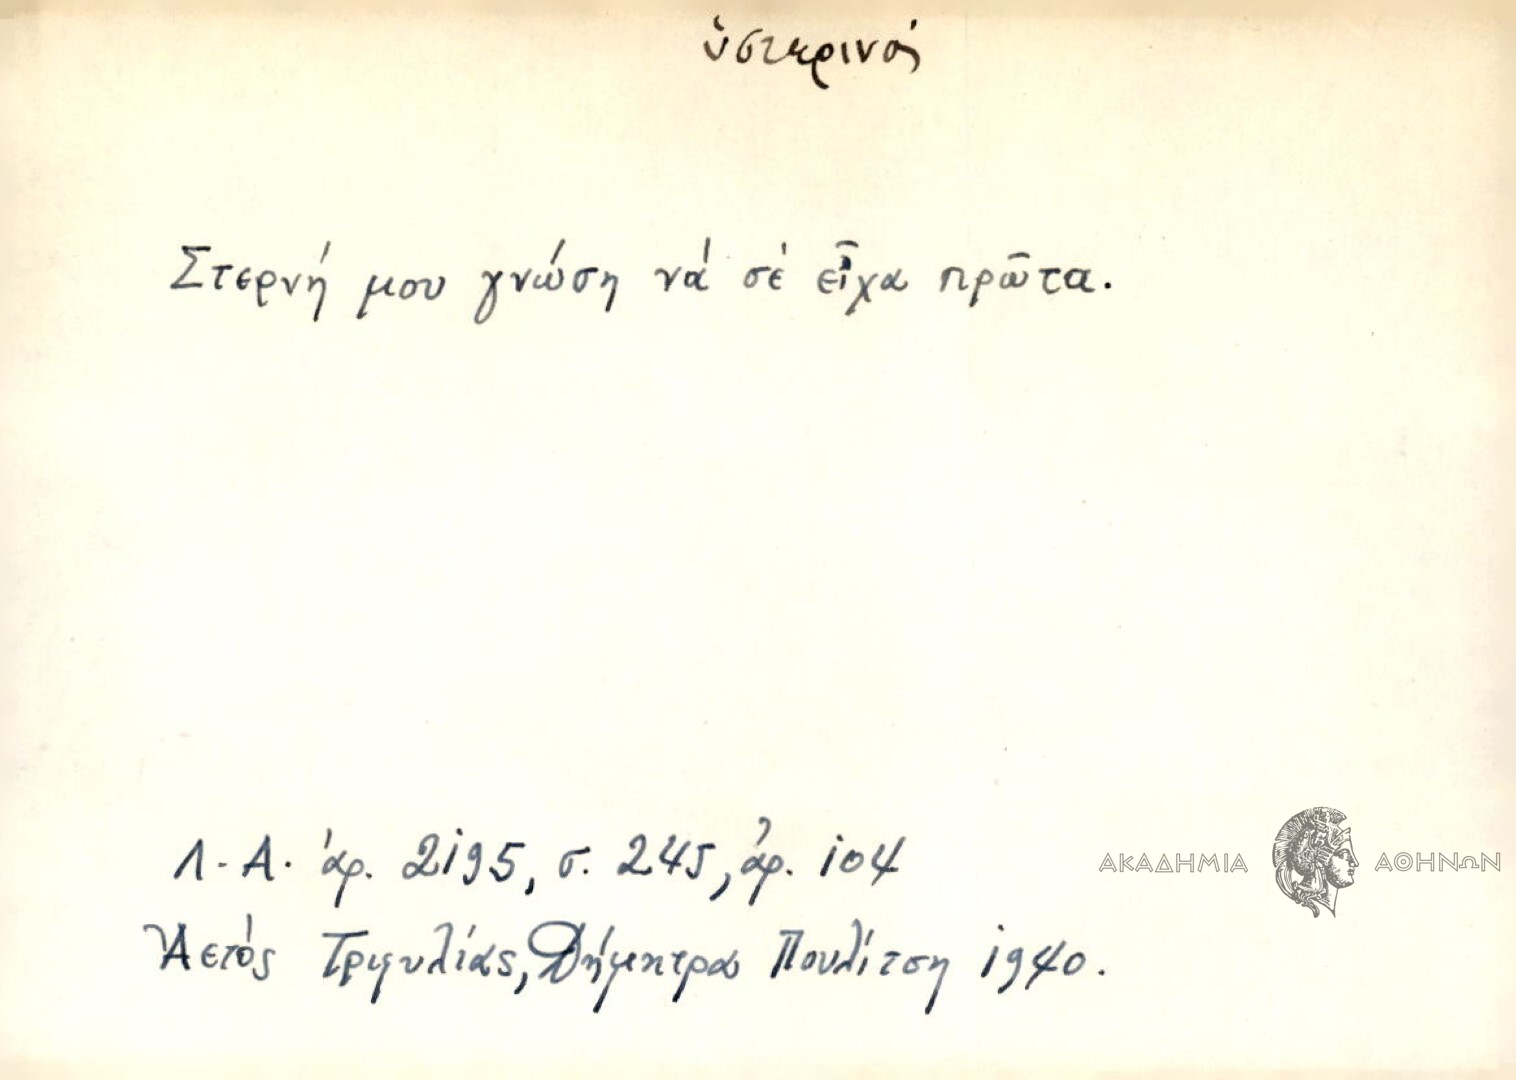 ὑστερινός
Στερνή μου γνώση νά σέ εἶχα πρῶτα.
Λ.Α. ἀρ. 2195, σ. 245, ἀρ. 104
ΑΚΑΔΗΜΙΑ ΑΘΗΝΩΝ
Ἀετός Τριφυλίας, Δήμητρα Πουλίτση 1940.